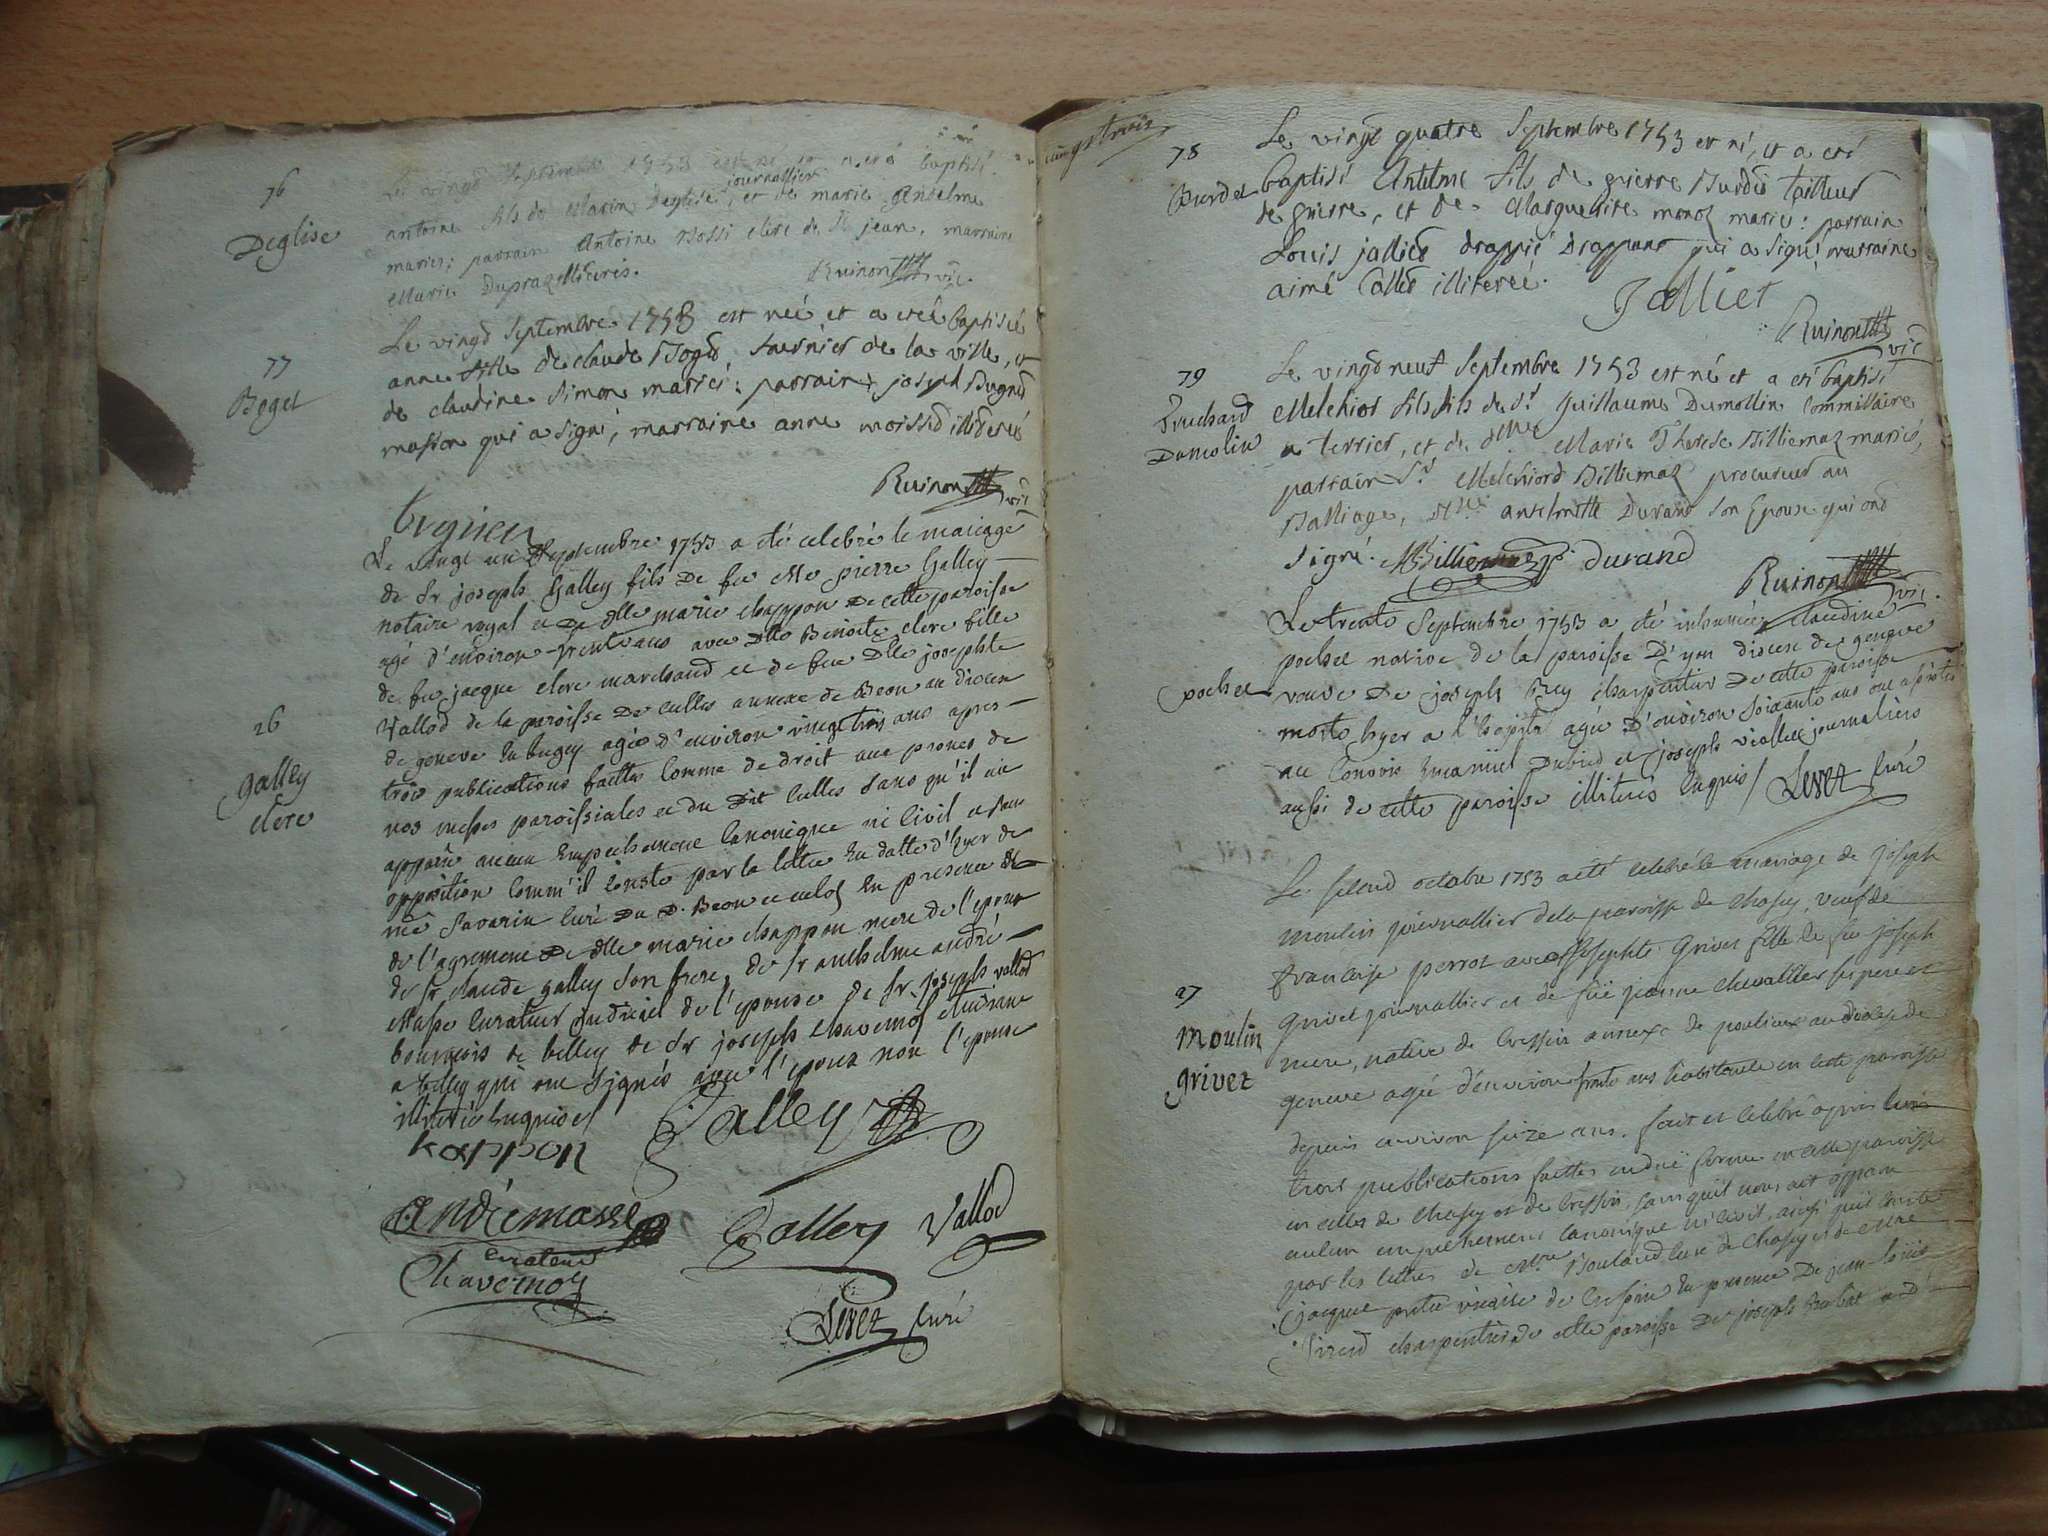 76
Deglise
Le vingt Septembre 1753 est né et a eté baptisé
antoine fils de Marin Deglise journallier, et de marie Anselme
mariés; parrain Antoine Bossi clerc de St jean, marraine
Marie Dupraz
Ruinon vic.
77
Boget
Le vingt Septembre 1753 est née et a eté baptisée
anne fille de claude Boget, fournier de la ville, et
de claudine Simon mariés: parrain joseph Bugnet
masson qui a signé, marraine anne illiterés
Ruinon vic
26
galley
clerc
Le vingt un Septembre 1753 a été celebré le mariage
de Sr joseph Galley fils de feu Me pierre Galley
notaire royal et de Dlle marie chappon de cette paroisse
agé d'environ trent ans avec Dlle Benoite clerc fille
de feu jacque clerc marchand et de feu Dlle josephte
Vallod de la paroisse de culles annexe de Beon au diocese
de geneve en bugey agée d'environ vingt trois ans apres
trois publications faittes comme de droit aux prones de
nos messes paroissiales et du dit culles sans qu'il ait
apparu aucun empechement canonique ni civil
opposition comm'il conste par la lettre en datte d'hyer de
Savarin curé du d. Beon et culoz en presence et
de l'agrement de dlle marie chappon mere de l'epoux
de Sr claude galley son frere, de Sr anthelme andré
Masse curateur judiciel de l'epouse de Sr joseph vallod
bourgeois de belley de Sr joseph chavernoz etudiant
a belley qui ont signés avec l'epoux non l'epouse
illiterée enquise
kappon
Galley
andrémasse
curateur
Galley
Vallod
Chavernoz
Levet curé
78
Burdet
Le vingt quatre Septembre 1753 est né, et a eté
baptisé Antelme fils de pierre Burdet tailleur
de pierre, et de Marguerite monoz mariés: parrain
Louis jallied drappier Drappant qui a signé, marraine
aimé Callet illiterée.
Jalliet
Ruinon vic
79
Truchard
Dumolin
Le vingt neuf Septembre 1753 est né et a eté baptisé
Melchior fils de Sr guillaume Dumollin Commissaire
a terrier, et de dlle Marie Therese Billiemaz mariés,
parrain Sr Melchiord Billiemaz procureur au
Balliage, dlle antelmette Durand son Epouse qui ont
signé. Billiemaz durand
Ruinon vic.
pochet
Le trente Septembre 1753 a été inhumée claudine
pochet native de la paroisse D'yen diocese de geneve
veuve de joseph Rey charpentier de cette paroisse
morte hyer a l'hopital agée d'environ soixante ans ont assistés
au convois Emanuel Dubied et joseph viollet journaliers
aussi de cette paroisse illiterés enquis Levet curé
27
Moulin
grivet
Le second octobre 1753 a été celebré le mariage de joseph
moulin journallier de la paroisse de Chasey, veuf de
francoise perrot avec josephte Grivet fille de feu joseph
Grivet journallier et de feüe jeanne Chevallier ses pere et
mere, native de Cressin annexe de poulieux au diocese de
geneve agée d'environ trente ans habitante en cette paroisse
depuis environ seize ans. fait et celebré après
trois publications faittes en düe forme en cette paroisse
en celles de Chasey et de Cressin, sans qu'il nous ait apparu
aucun empechement canonique ni civil, ainsi qu'il conste
par les lettres de Mre Boutard curé de Chasey et de Mre
jacques pretre vicaire de Cressin en presence de jean-louis
charpentier de cette paroisse de joseph